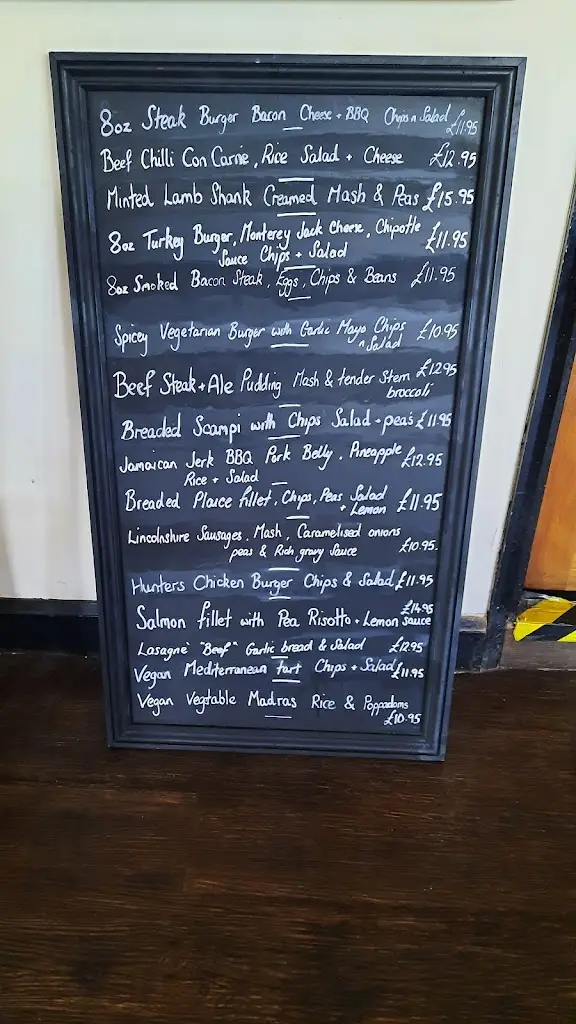 8oz Steak Burger Bacon Cheese + BBQ Chips n Salad £11.95
Beef Chilli Con Carne, Rice Salad + Cheese £12.95
Minted Lamb Shank Creamed Mash & Peas £15.95
8oz Turkey Burger, Monterey Jack Cheese, Chipotle £11.95
Sauce Chips + Salad
8oz Smoked Bacon Steak, Eggs, Chips & Beans £11.95
Spicey Vegetarian Burger with Garlic Mayo Chips £10.95
n Salad
Beef Steak + Ale Pudding Mash & tender Stem £12.95
broccoli
Breaded Scampi with Chips Salad + pea's £11.95
Jamaican Jerk BBQ Pork Belly, Pineapple £12.95
Rice + Salad
Breaded Plaice fillet, Chips, Peas Salad £11.95
+ Lemon
Lincolnshire Sausages, Mash, Caramelised onions
peas & Rich gravy Sauce £10.95.
Hunters Chicken Burger Chips & Salad £11.95
£14.95
Salmon fillet with Pea Risotto + Lemon sauce
Lasagne "Beef" Garlic bread & Salad £12.95
Vegan Mediterranean tart Chips + Salad £11.95
Vegan Vegtable Madras Rice & Poppadoms
£10.95